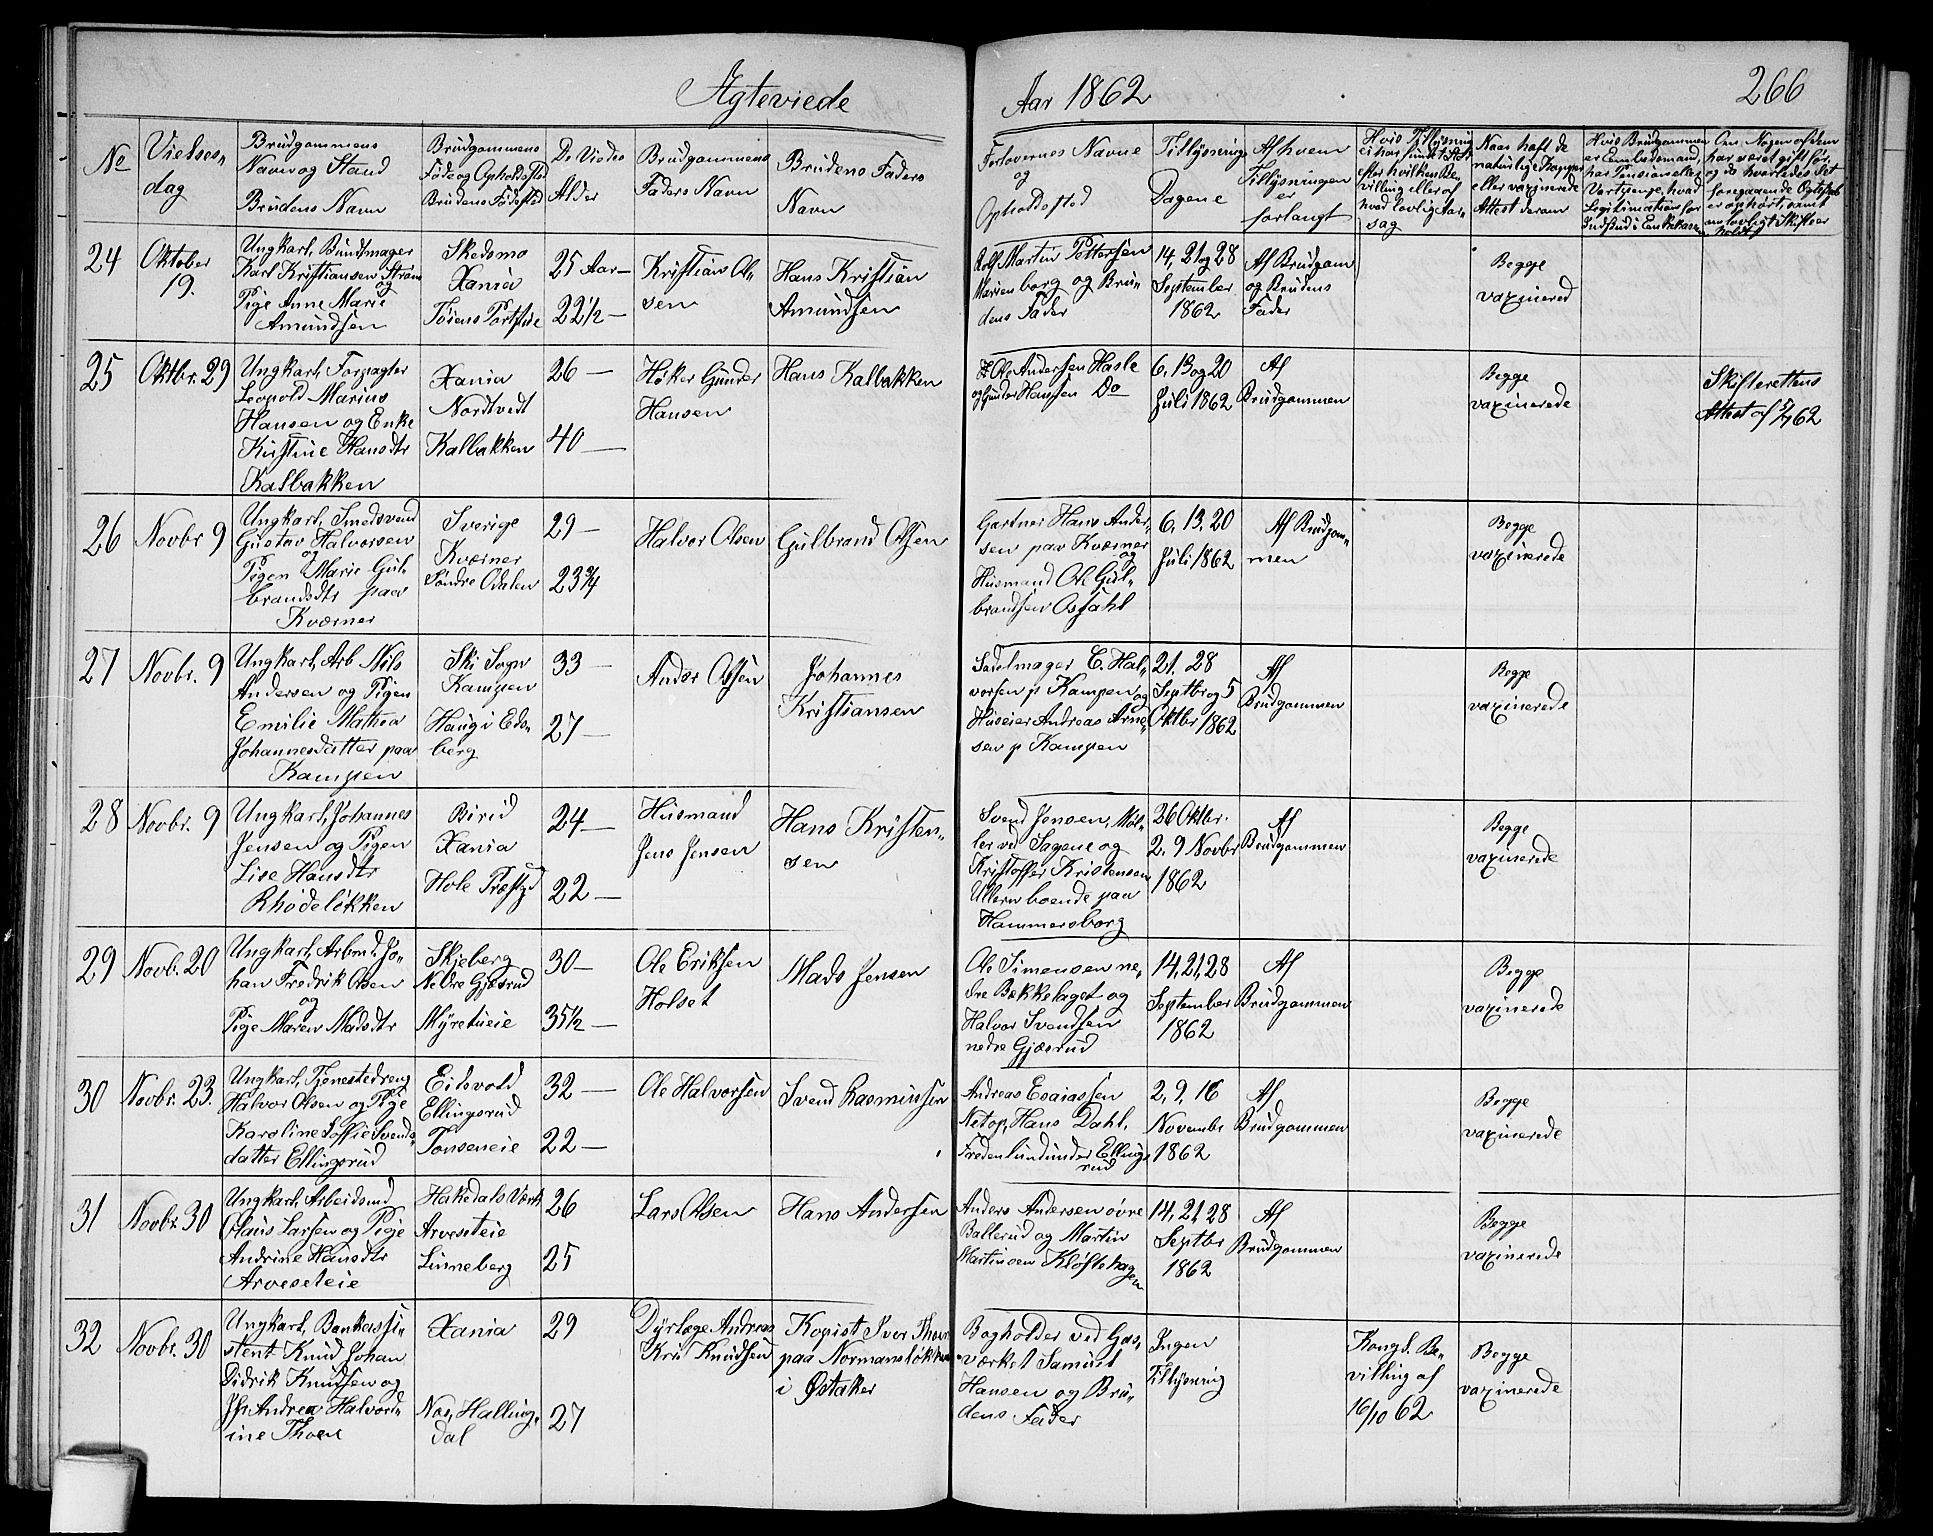 Ægteviede
Aar 1862
266
No
Vielses-
dag
Brudgommens
Navn og Stand
Brudens Navn
Brudgommens
Føde og Opholdssted
Brudens Fødested
De Viedes
Alder
Brudgommens
Faders Navn
Brudens Faders
Navn
Forlovernes Navne
og
Opholdssted
Tillysnings
Dagene
Af hvem
Tillysningen
er
forlangt
Hvis Tillysning
ei har fundet Sted
efter hvilken Be-
villing eller af
hvad lovlig Aar-
sag
Naar hafte de
naturlige Kopper
eller vaxinerede
Attest derom
Hvis Brudgommen
er Embedsmand,
har Pension eller
Vartpenge, hvad
Legitimation for
Indskud i Enkekassen
Om Nogen af dem
har været gift før,
og da hvorledes det
foregaaende Egteskab
er ophørt, samt
om lovligt Skifte er
holdt
24
Oktober
19.
Ungkarl, Bundtmager
Karl Kristiansen Strøm
og
Pige Anne Marie
Amundsen
Skedsmo
Xania
Tøiens Portstue
25 Aar —
22 1/2 —
Kristian Ol-
sen
Hans Kristian
Amundsen
Rolf Martin Pettersen
Marienborg og Bru-
dens Fader
14, 21 og 28
September
1862
Af Brudgom
og Brudens
Fader
Begge
vaxinered
25
Oktbr. 29
Ungkarl, Forpagter
Leopold Marius
Hansen og Enke
Kirstine Hansdtr
Kalbakken
Xania
Nordtvedt
Kalbakken
26 —
40 —
Høker Gunder
Hansen
Hans Kalbakken
Ole Andersen Hasle
og Gunder Hansen Do
6, 13 og 20
Juli 1862
Af
Brudgommen
Begge
vaxinerede
Skifterettens
Attest af 5/7 62
26
Novbr 9
Ungkarl, Smedsvend
Gustav Halvorsen
og
Pigen Marie Gul-
brandsdtr paa
Kværner
Sverige
Kværner
Søndre Odalen
29 —
23 3/4
Halvor Olsen
Gulbrand Olsen
Gartner Hans Ander-
sen paa Kværner
og
Husmand Ole Gul-
brandsen Osfahl
6, 13, 20
Juli 1862
Af Brudgom-
men
Begge
vaxinerede
27
Novbr. 9
Ungkarl, Arb Nils
Andersen og Pigen
Emilie Mathea
Johannesdatter paa
Kampen
Ski Sogn
Kampen
Haug i Eds-
berg
33 —
27 —
Ander Olsen
Johannes
Kristiansen
Sadelmager C. Hal-
vorsen p Kampen og
Huseier Andreas Arne-
sen p Kampen
21, 28
Septbr og 5
Oktbr 1862
Af
Brudgommen
Begge
vaxinerede
28
Novbr. 9
Ungkarl, Johannes
Jensen og Pigen
Lise Hansdtr
Rhodeløkken
Birid
Xania
Hole Præstgd
24 —
22 —
Husmand
Jens Jensen
Hans Kristen-
sen
Svend Jensen, Møl-
ler ved Sagene og
Kristoffer Kristensen
Ullern boende paa
Hammersborg
26 Oktbr.
2, 9 Novbr
1862
Af
Brudgommen
Begge
vaxinerede
29
Novb. 20
Ungkarl, Arbmd. Jo-
han Fredrik Olsen
og
Pige Maren Madsdtr
Skjeberg
Nedre Gjæsrud
Myretueie
30 —
35 1/2 —
Ole Eriksen
Holset
Mads Jensen
Ole Simensen ne-
dre Bækkelaget og
Halvor Svendsen
nedre Gjæsrud
14, 21, 28
September
1862
Af
Brudgommen
Begge
vaxinerede
30
Novbr. 23.
Ungkarl, Tjenestedreng
Halvor Olsen og Pige
Karoline Soffie Svends-
datter Ellingsrud
Eidsvold
Ellingsrud
Tonseneie
32 —
22 —
Ole Halvorsen
Svend Rasmussen
Andreas Esaiassen
Netop, Hans Dahl,
Fredenlund under Ellings-
rud
2, 9, 16
Novembr
1862
Af
Brudgommen
Begge
vaxinerede
31
Novbr. 30
Ungkarl, Arbeidsmd
Olaus Larsen og Pige
Andrine Hansdtr
Arveseteie
Hakedals Værk
Arveseteie
Linneberg
26
25
Lars Olsen
Hans Andersen
Anders Andersen øvre
Ballerud og Martin
Martinsen Kløftehagen
14, 21, 28
Septbr
1862
Af
Brudgommen
Begge
vaxinerede
32
Novbr. 30
Ungkarl, Bankassi-
stent Knud Johan
Didrik Knudsen og
Jfr Andrea Halvord-
ine Thoen
Xania
Næs, Halling-
dal
29
27
Dyrlæge Andreas
Kris Knudsen
Kopist Iver Thoen
paa Normansløkken
i Østaker
Bogholder ved Gas-
værket Samuel
Hansen og Bru-
dens Fader
Ingen
Tillysning
Kongl. Be-
villing af
16/10 62
Begge
vaxinerede